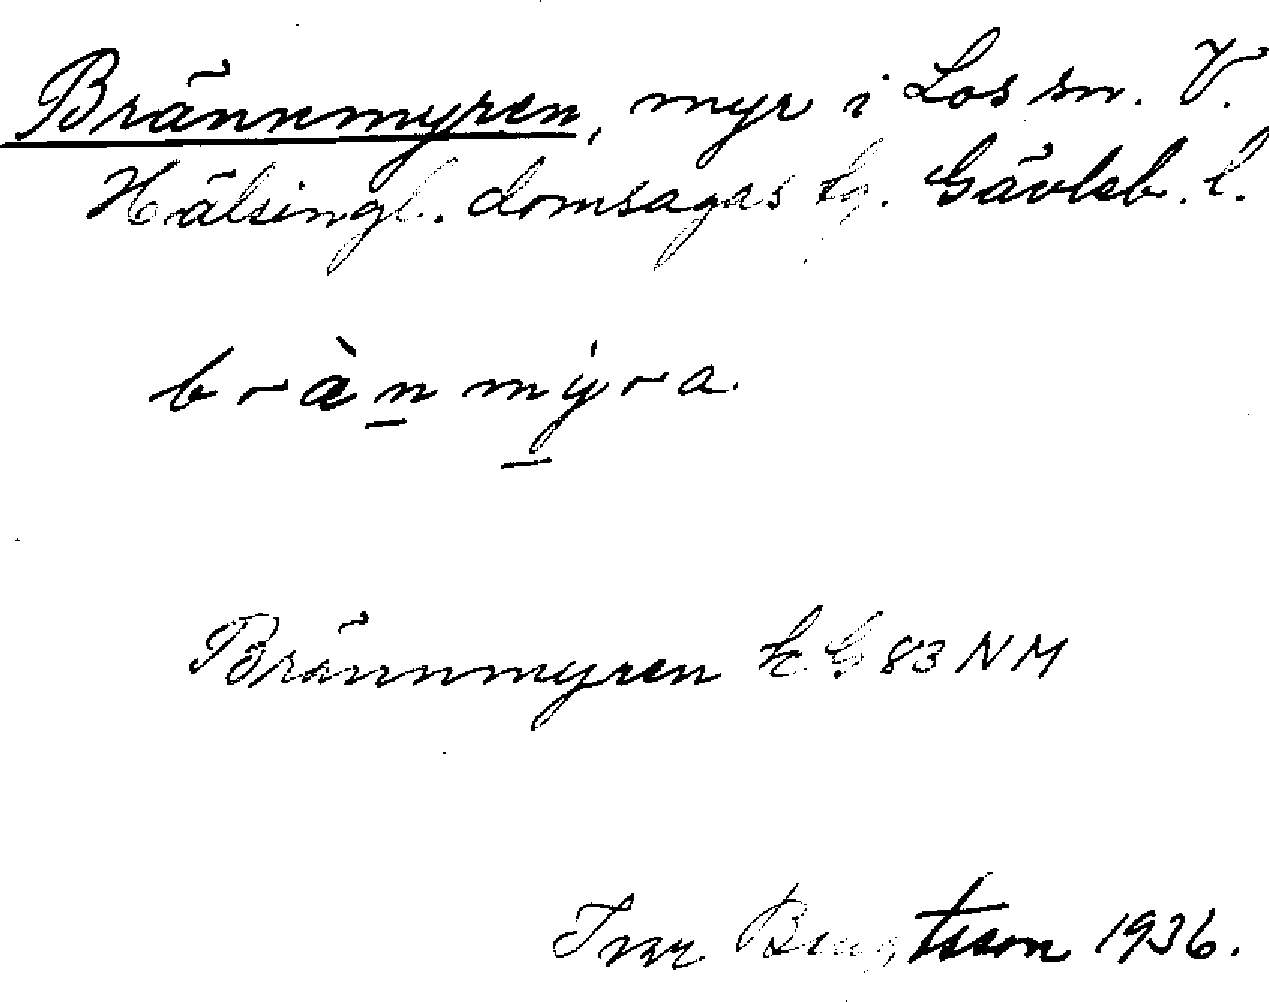 Brännmyren, myr i Los sn. V.
Hälsingl. domsagas tg. Gävleb. l.
brànmýra
Brännmyren k G 83 NM
Ivar Bengtsson 1936.